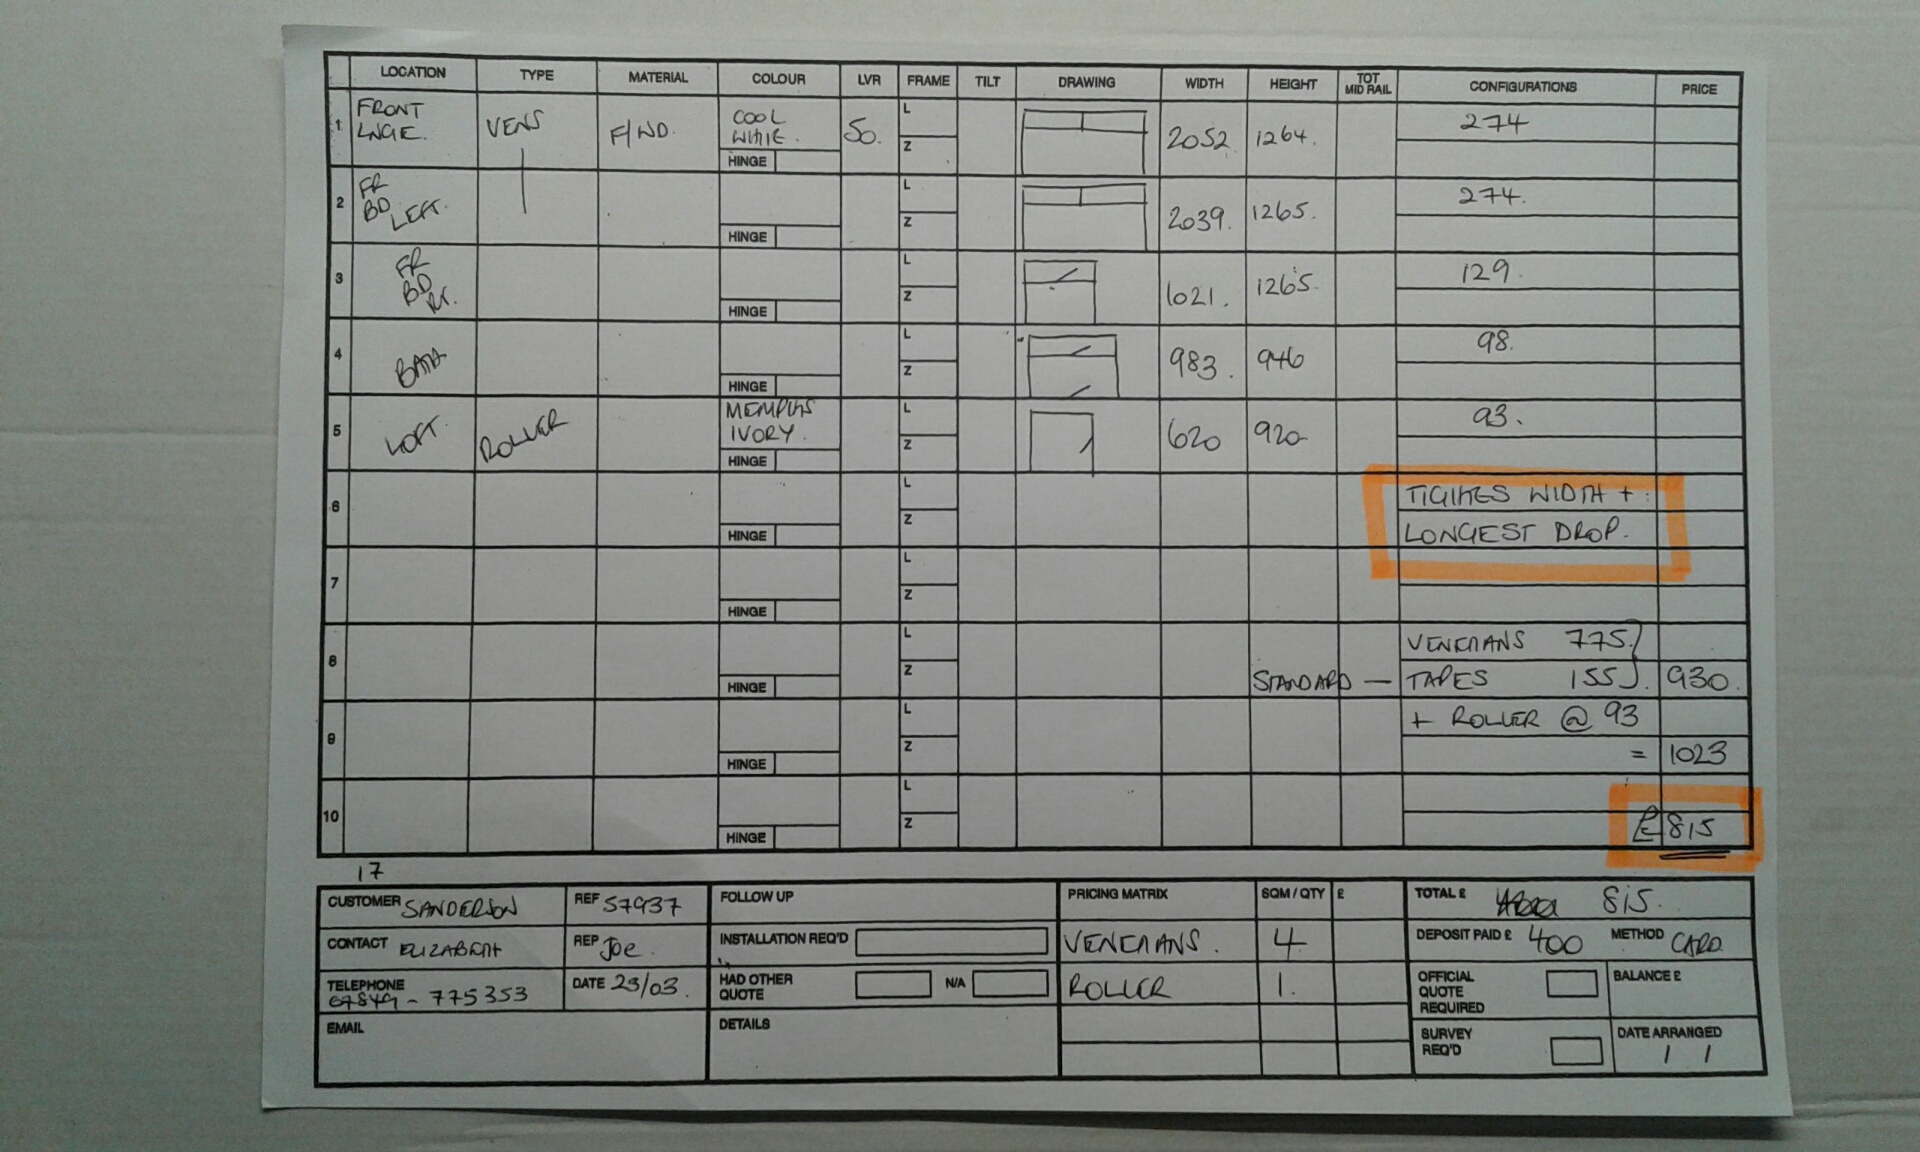 LOCATION TYPE MATERIAL COLOUR LVR FRAME TILT DRAWING WIDTH HEIGHT TOT MID RAIL CONFIGURATIONS PRICE
1 FRONT LNGE. VENS F/WD. COOL WHITE. HINGE 50. L Z 2052 1264. 274
2 FR BD LEFT. HINGE L Z 2039. 1265. 274.
3 FR BD RT. HINGE L Z 1021. 1265. 129.
4 BATH HINGE L Z 983. 946 98.
5 LOFT. ROLLER MEMPHIS IVORY. HINGE L Z 620 920 93.
6 HINGE L Z TIGHTES WIDTH +
LONGEST DROP.
7 HINGE L Z
8 HINGE L Z VENETIANS 775
STANDARD — TAPES 155 930.
9 HINGE L Z + ROLLER @ 93
= 1023
10 HINGE L Z £ 815
17
CUSTOMER SANDERSON REF 57937 FOLLOW UP PRICING MATRIX SQM / QTY £ TOTAL £ 815.
CONTACT ELIZABETH REP Joe. INSTALLATION REQ'D VENETIANS. 4 DEPOSIT PAID £ 400 METHOD CARD
TELEPHONE 07849 - 775353 DATE 23/03. HAD OTHER QUOTE N/A ROLLER 1. OFFICIAL QUOTE REQUIRED BALANCE £
EMAIL DETAILS SURVEY REQ'D DATE ARRANGED / /